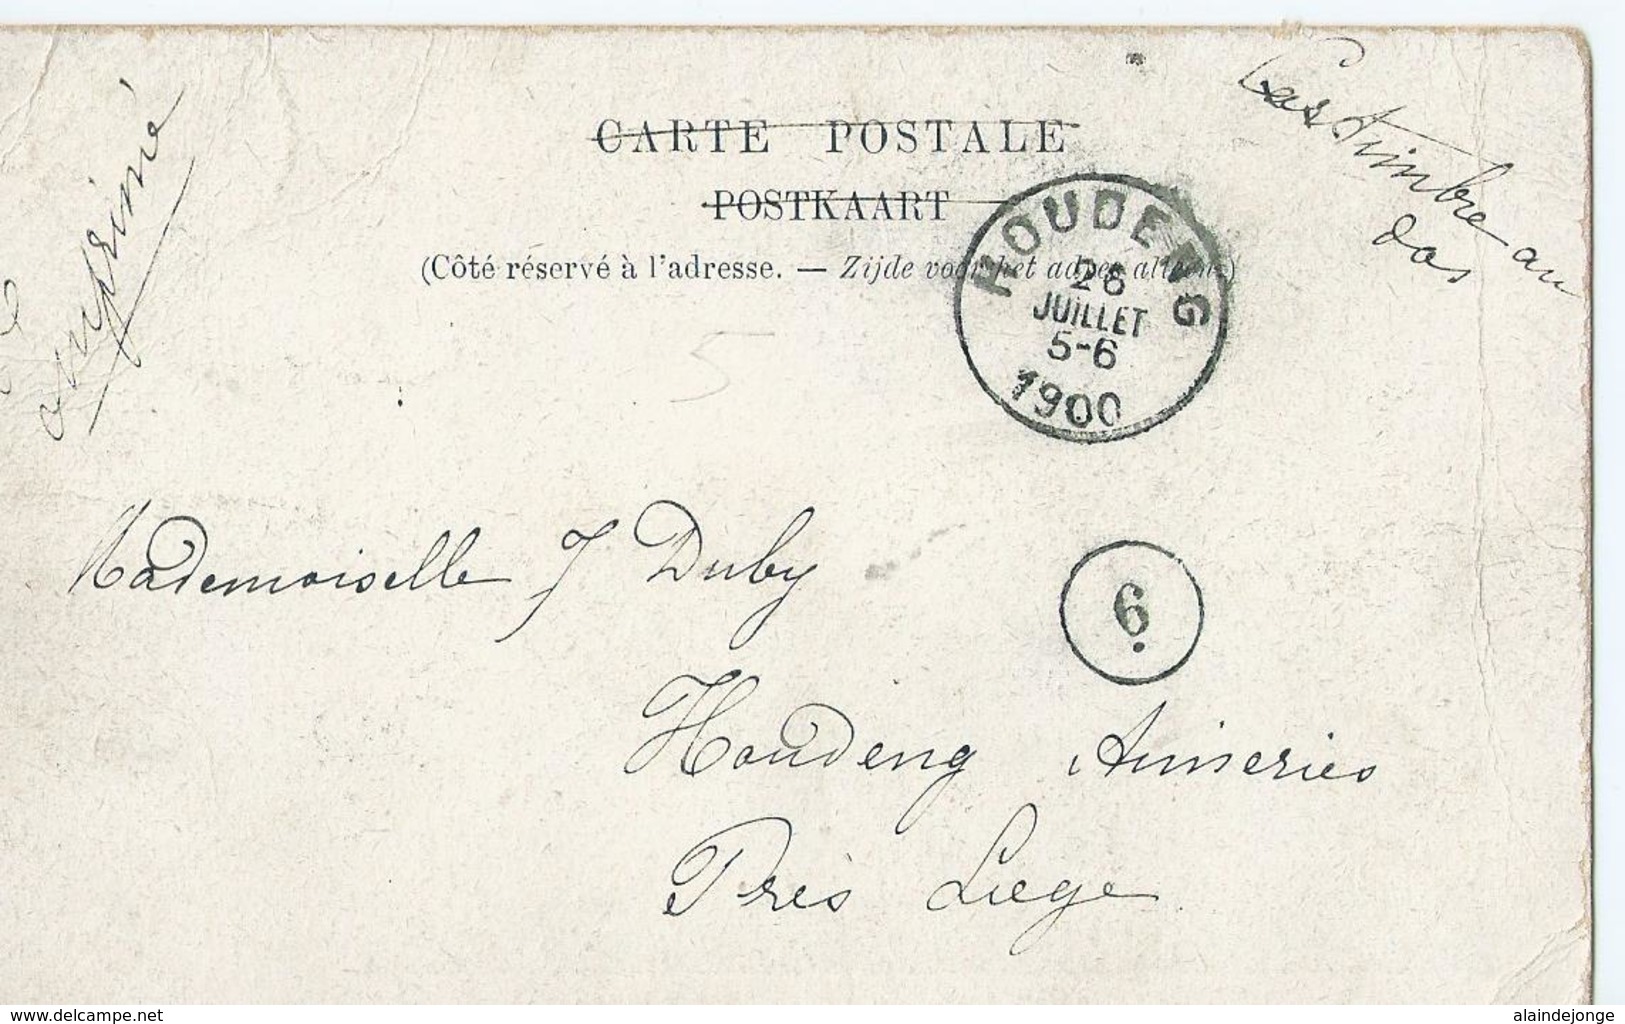 imprimé
CARTE POSTALE
POSTKAART
(Côté réservé à l'adresse. — Zijde voor het adres alleen.)
timbre au
dos
HOUDENG
26
JUILLET
5-6
1900
5
Mademoiselle J Duby
6
Houdeng Aimeries
Près Liège
www.delcampe.net
alaindejonge